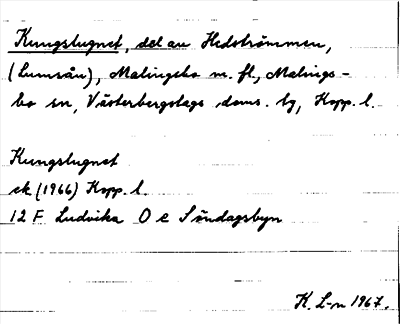 Kungslugnet, del av Hedströmmen,
(Lumsån), Malingsbo m. fl., Malings-
bo sn, Västerbergslags doms. tg, Kopp. l.
Kungslugnet
ek (1966) Kopp. l.
12 F Ludvika O e Söndagsbyn
K. L-n 1967.